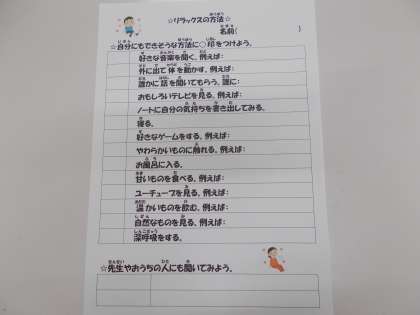 ☆リラックスの方法☆
名前( )
☆自分にもできそうな方法に○印をつけよう。
好きな音楽を聞く。例えば:
外に出て体を動かす。例えば:
誰かに話を聞いてもらう。誰に:
おもしろいテレビを見る。例えば:
ノートに自分の気持ちを書き出してみる。
寝る。
好きなゲームをする。例えば:
やわらかいものに触れる。例えば:
お風呂に入る。
甘いものを食べる。例えば:
ユーチューブを見る。例えば:
温かいものを飲む。例えば:
自然なものを見る。例えば:
深呼吸をする。
☆先生やおうちの人にも聞いてみよう。